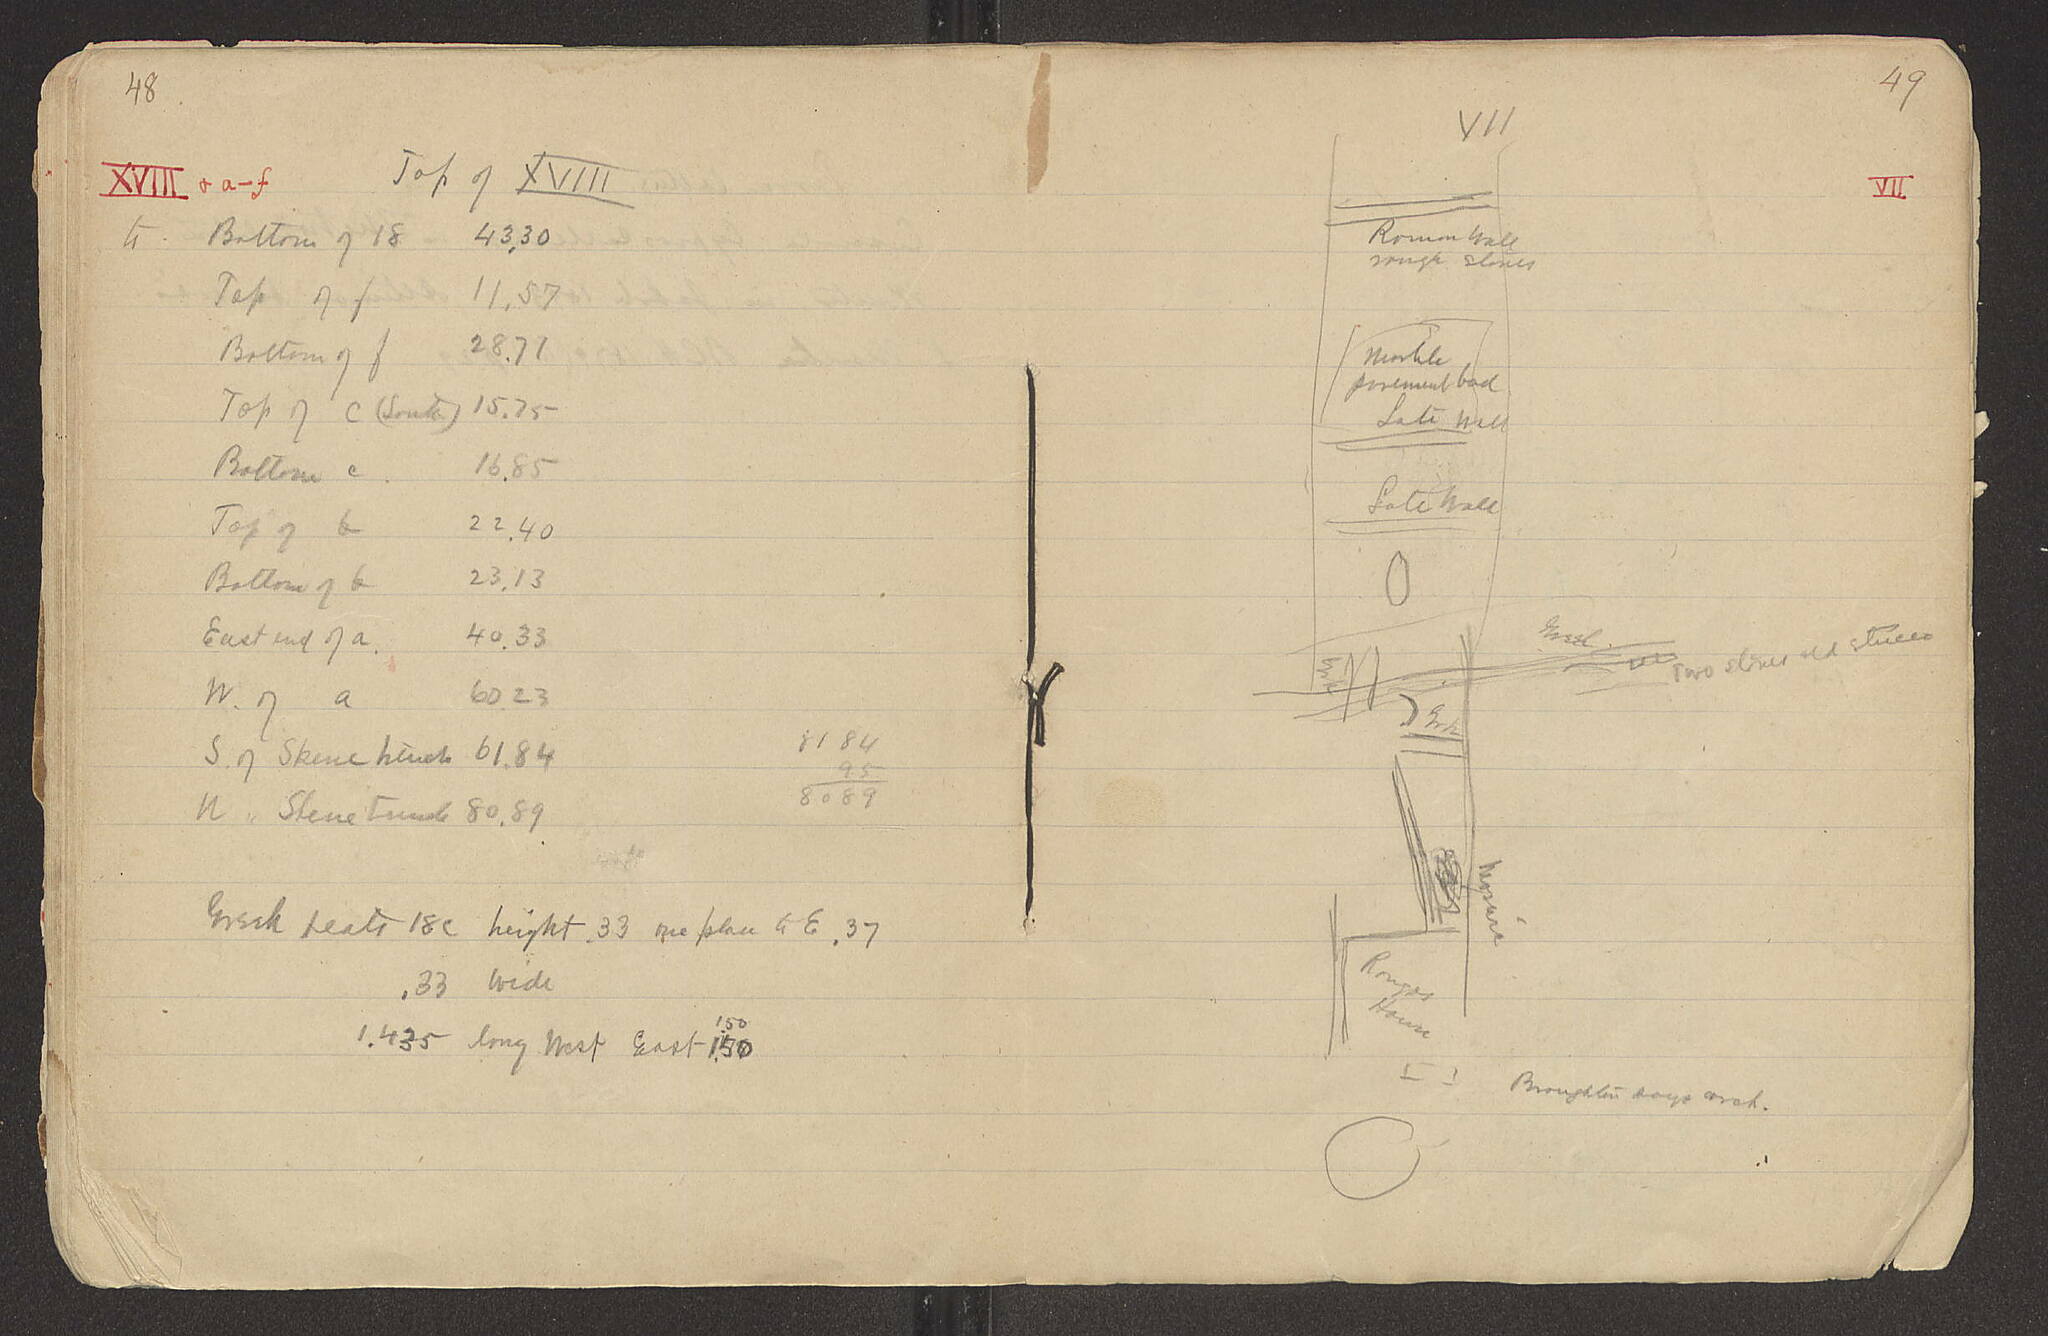 48
XVIII & a-f
Top of XVIII
to Bottom of 18 43.30
Top of f 11.57
Bottom of f 28.71
Top of c (South) 15.75
Bottom c. 16.85
Top of b 22.40
Bottom of b 23.13
East end of a. 40.33
W. of a 60 23
S. of Skene trench 61.84
N " Skene trench 80.89
81 84
95
80 89
Greek seats 18c height .33 one place to E .37
.33 wide
1.435 long West East 1.50
1.50
49
VII
VII
Roman Wall
rough stones
Marble
pavement bad
Late Wall
Late Wall
Greek.
Two stones old stucco
Grk
Grk
Mosaic
House
Broughton says arch.